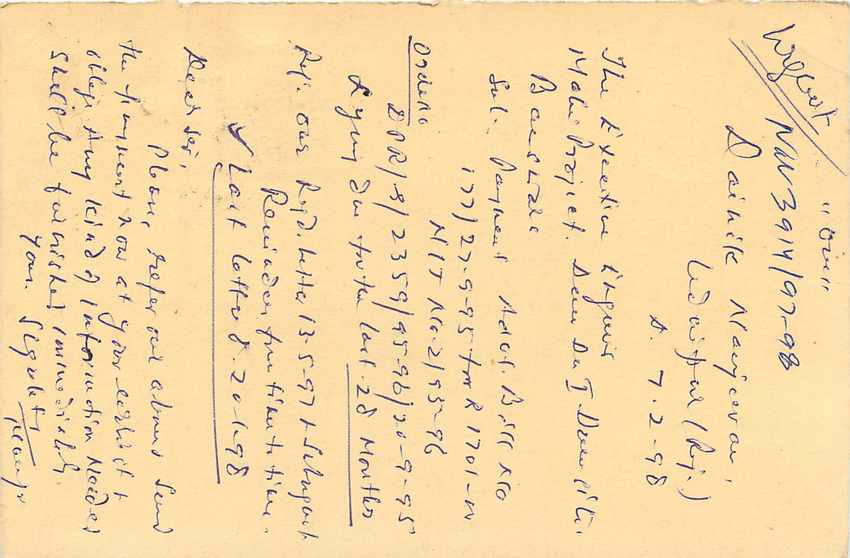 "Om"
Urgent
NW 3914/97-98
Dainik Navjeevan,
Udaipur (Raj.)
D. 7.2-98
The Executive Engineer
Mahi Project. Dam Dn I Dam site.
Banswara
Sub:. Payment Advt Bill No
177/27-9-95 for R 1701-00
NIT No-2/95-96
Order No DPR/8/2359/95-96/20-9-95
Lying due for the last 28 Months
Ref:. our Regd. letter 13-5-97 & Subsequent
Reminders from time to time.
& Last letter D. 20-1-98
Dear Sir,
Please, refer our above send
the payment now at your earliest &
oblige Any kind of information needed
shall be furnished immediately.
Yours